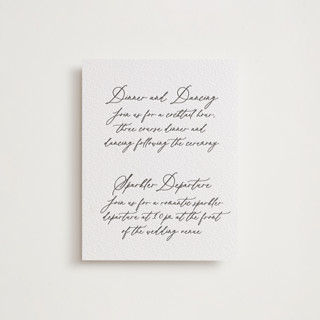 Dinner and Dancing
Join us for a cocktail hour,
three course dinner and
dancing following the ceremony
Sparkler Departure
Join us for a romantic sparkler
departure at at the front
of the wedding venue